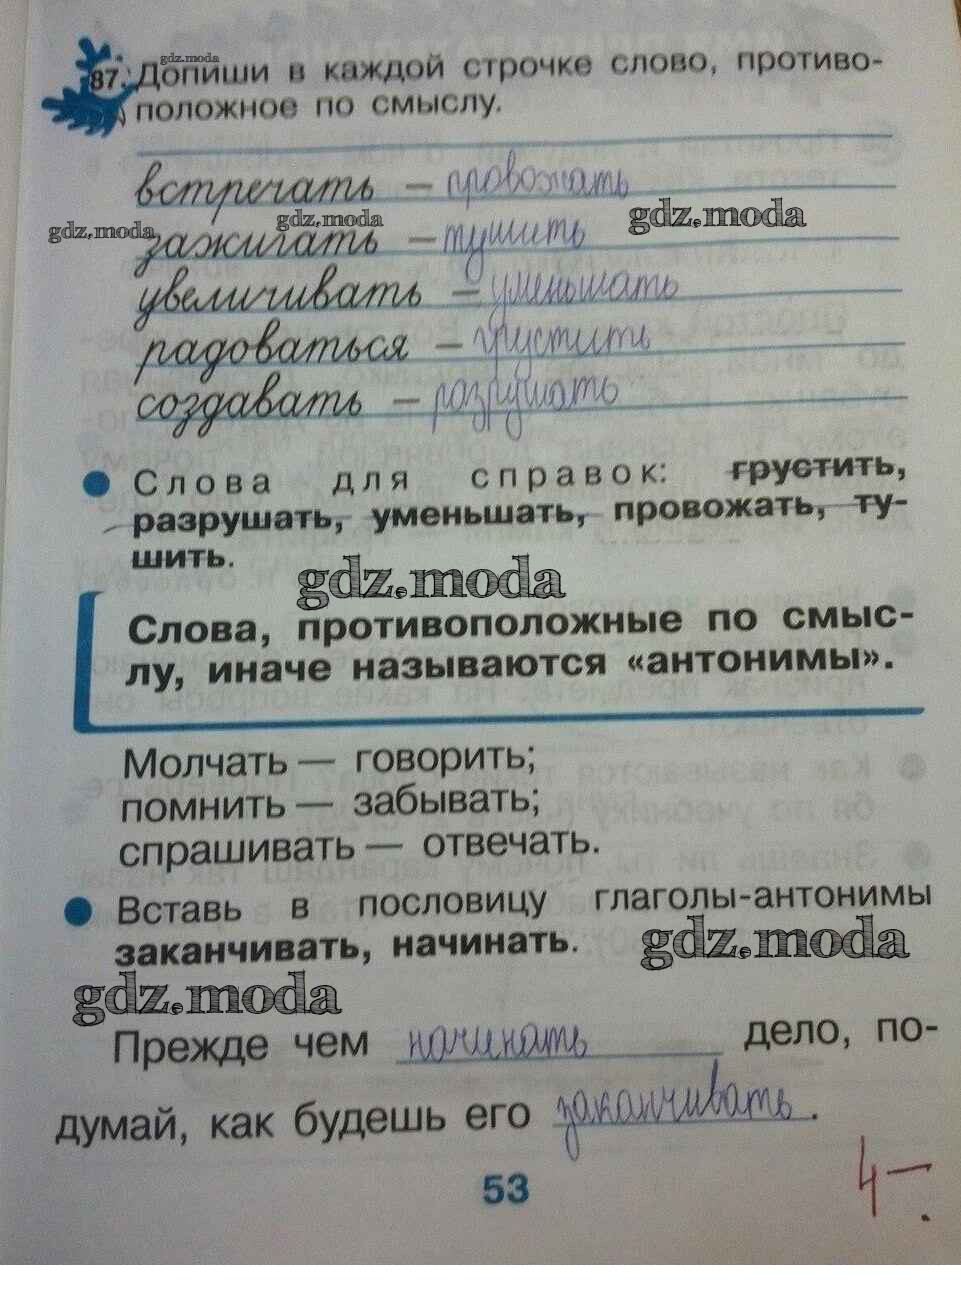 gdz.moda
87. Допиши в каждой строчке слово, противо-
положное по смыслу.
встречать – провожать
gdz.moda gdz.moda gdz.moda
зажигать – тушить
увеличивать – уменьшать
радоваться – грустить
создавать – разрушать
Слова для справок: грустить,
разрушать, уменьшать, провожать, ту-
шить.
gdz.moda
Слова, противоположные по смыс-
лу, иначе называются «антонимы».
Молчать — говорить;
помнить — забывать;
спрашивать — отвечать.
Вставь в пословицу глаголы-антонимы
заканчивать, начинать.
gdz.moda
gdz.moda
Прежде чем начинать дело, по-
думай, как будешь его заканчивать.
53
4–.